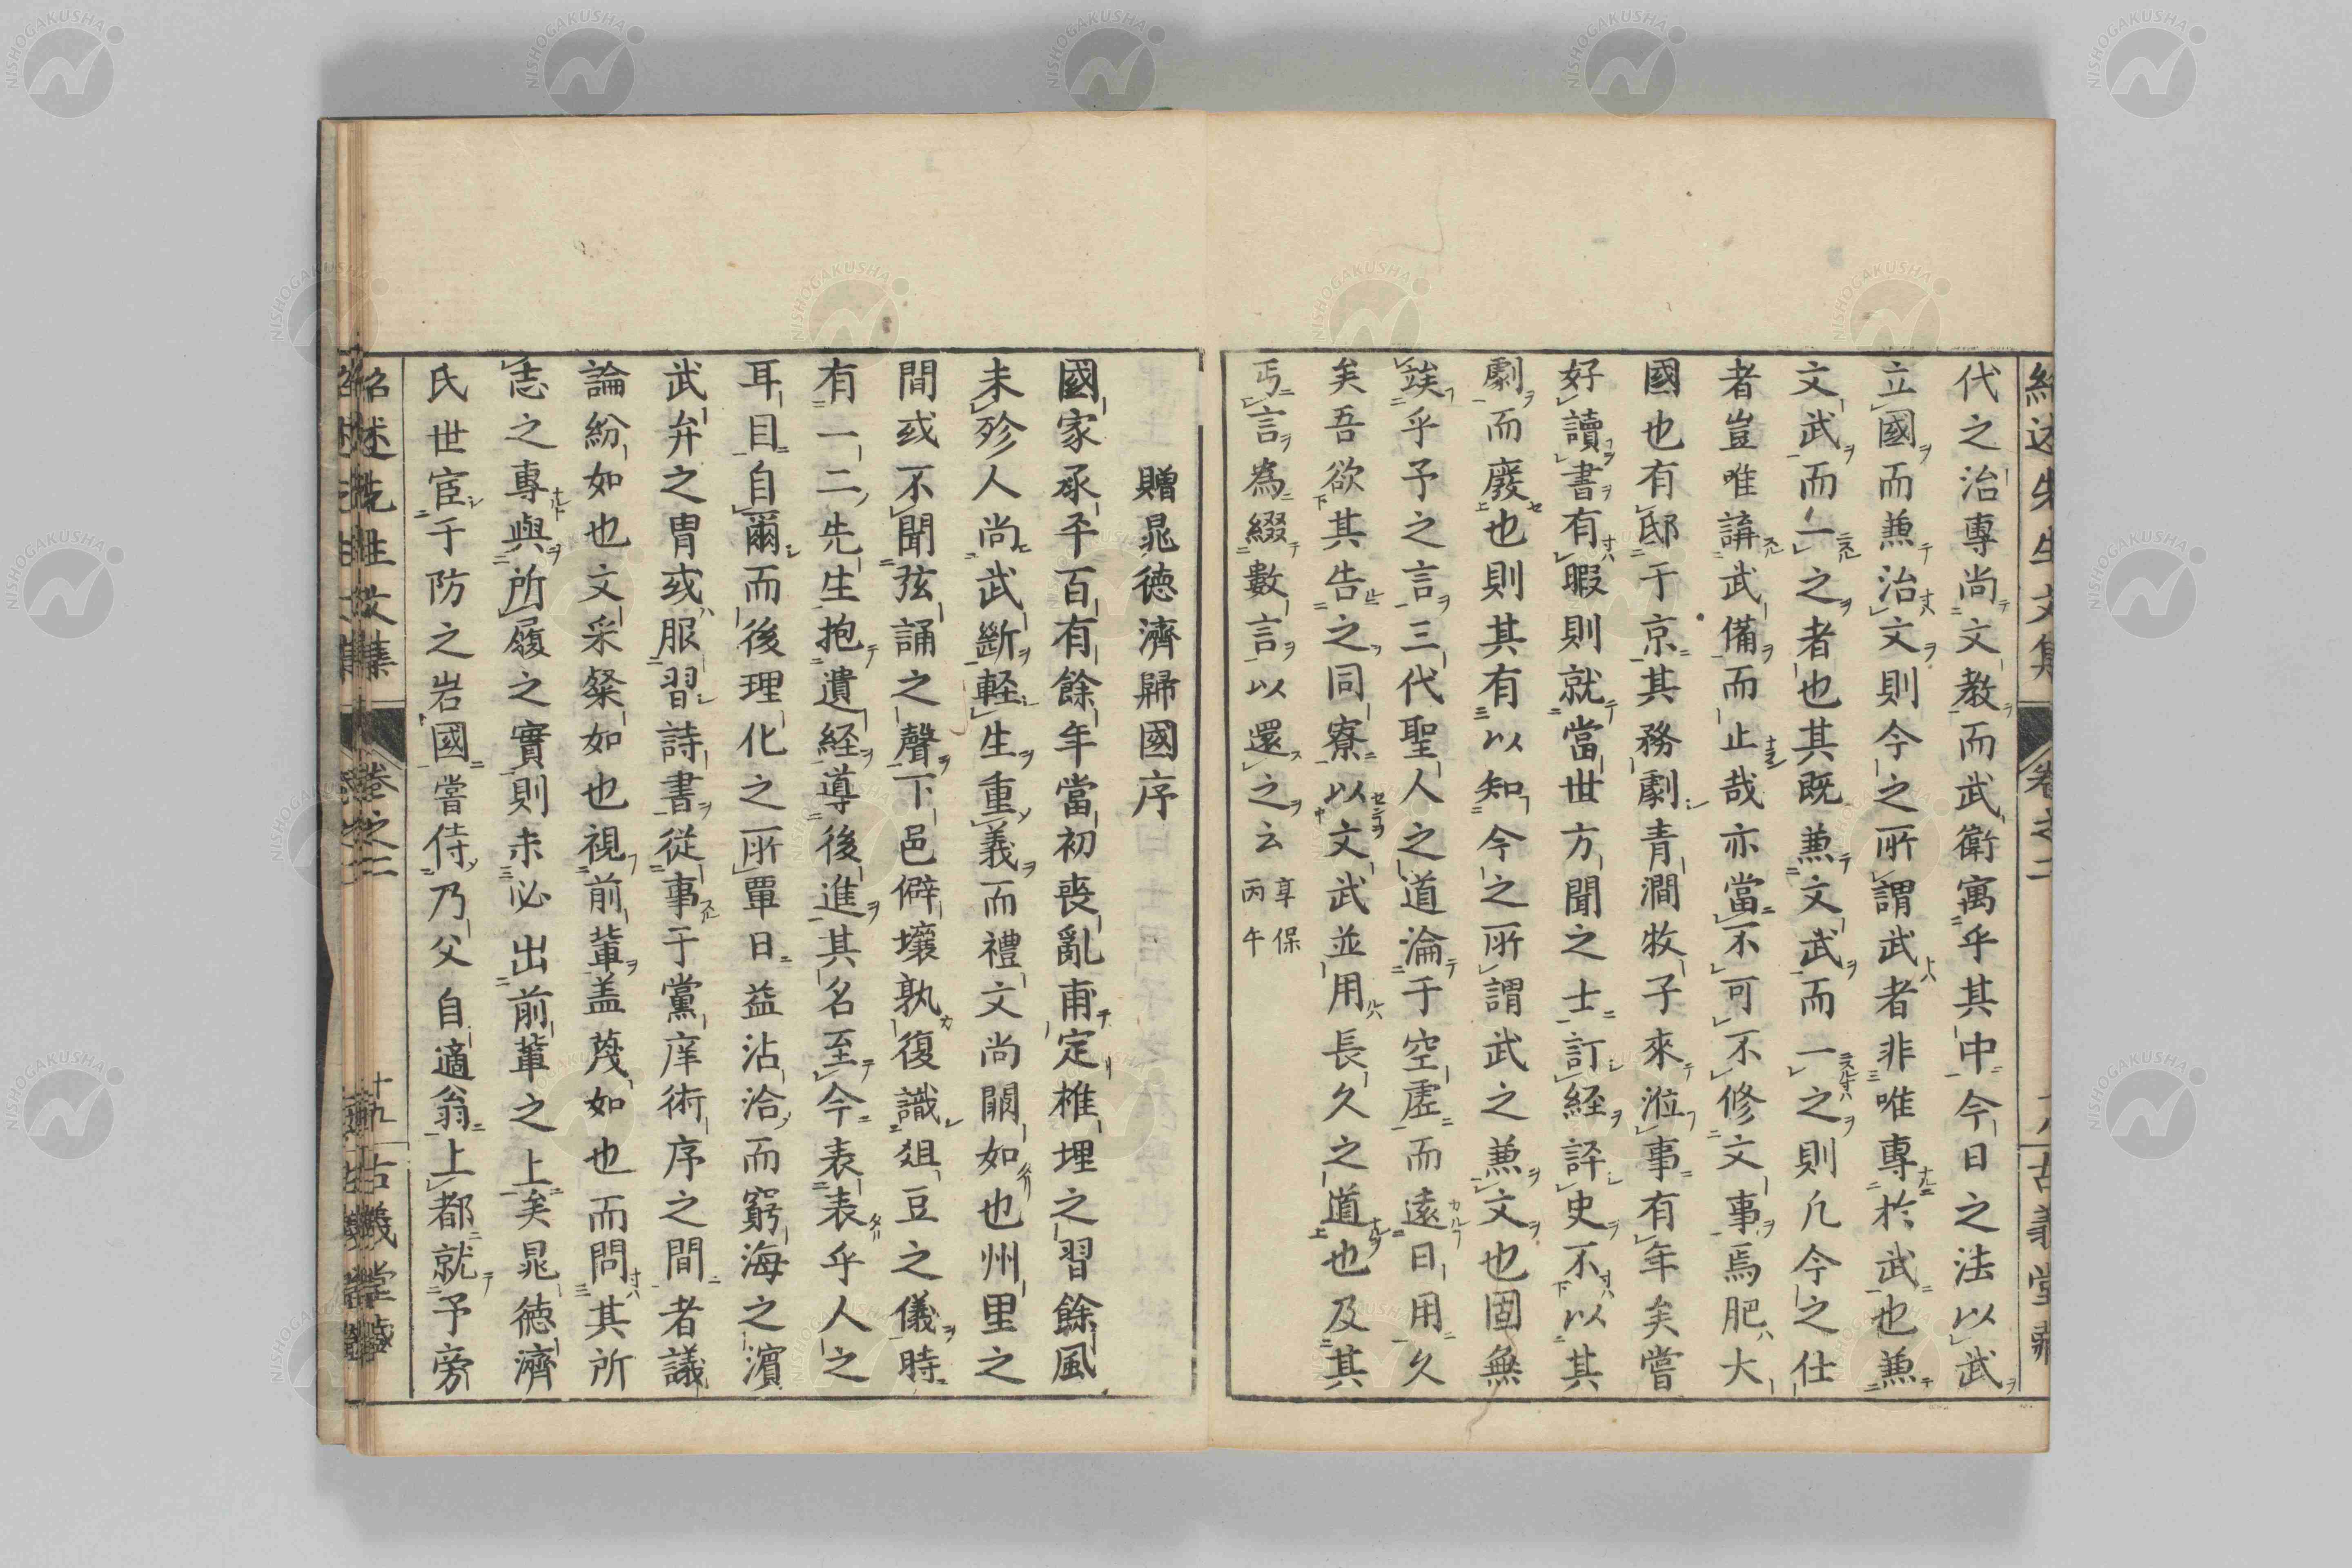 代之治專尚文教而武衛寓乎其中今日之法以武
立國而兼治文則今之所謂武者非唯專於武也兼
文武而一之者也其既兼文武而一之則凡今之仕
者豈唯講武備而止哉亦當不可不修文事焉肥大
國也有邸于京其務劇青澗牧子來涖事有年矣嘗
好讀書有暇則就當世方聞之士訂経評史不以其
劇而廢也則其有以知今之所謂武之兼文也固無
竢乎予之言三代聖人之道淪于空虛而遠日用久
矣吾欲其告之同寮以文武並用長久之道也及其
丐言為綴數言以還之云 享保丙午
贈晁德濟歸國序
國家承平百有餘年當初喪亂甫定椎埋之習餘風
未殄人尚武斷軽生重義而禮文尚闕如也州里之
間或不聞弦誦之聲下邑僻壤孰復識俎豆之儀時
有一二先生抱遺経導後進其名至今表表乎人之
耳目自爾而後理化之所覃日益沾洽而窮海之濵
武弁之冑或服習詩書從事于黨庠術序之間者議
論紛如也文采粲如也視前軰盖蔑如也而問其所
志之專與所履之實則未必出前軰之上矣晁徳濟
氏世宦于防之岩國嘗侍乃父自適翁上都就予旁
紹述先生文集 卷之二 十九 古義堂藏